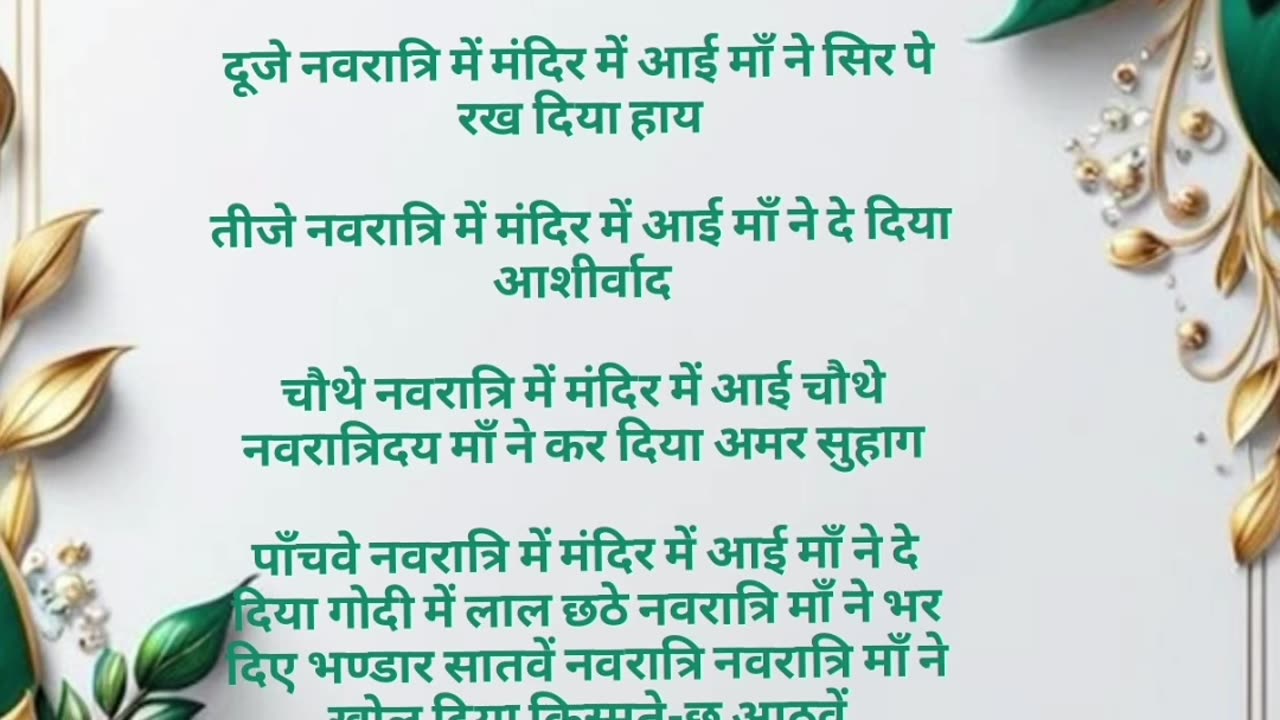 दूजे नवरात्रि में मंदिर में आई माँ ने सिर पे
रख दिया हाय
तीजे नवरात्रि में मंदिर में आई माँ ने दे दिया
आशीर्वाद
चौथे नवरात्रि में मंदिर में आई चौथे
नवरात्रिदय माँ ने कर दिया अमर सुहाग
पाँचवे नवरात्रि में मंदिर में आई माँ ने दे
दिया गोदी में लाल छठे नवरात्रि माँ ने भर
दिए भण्डार सातवें नवरात्रि नवरात्रि माँ ने
खोल दिया किस्मते-छ आठवें